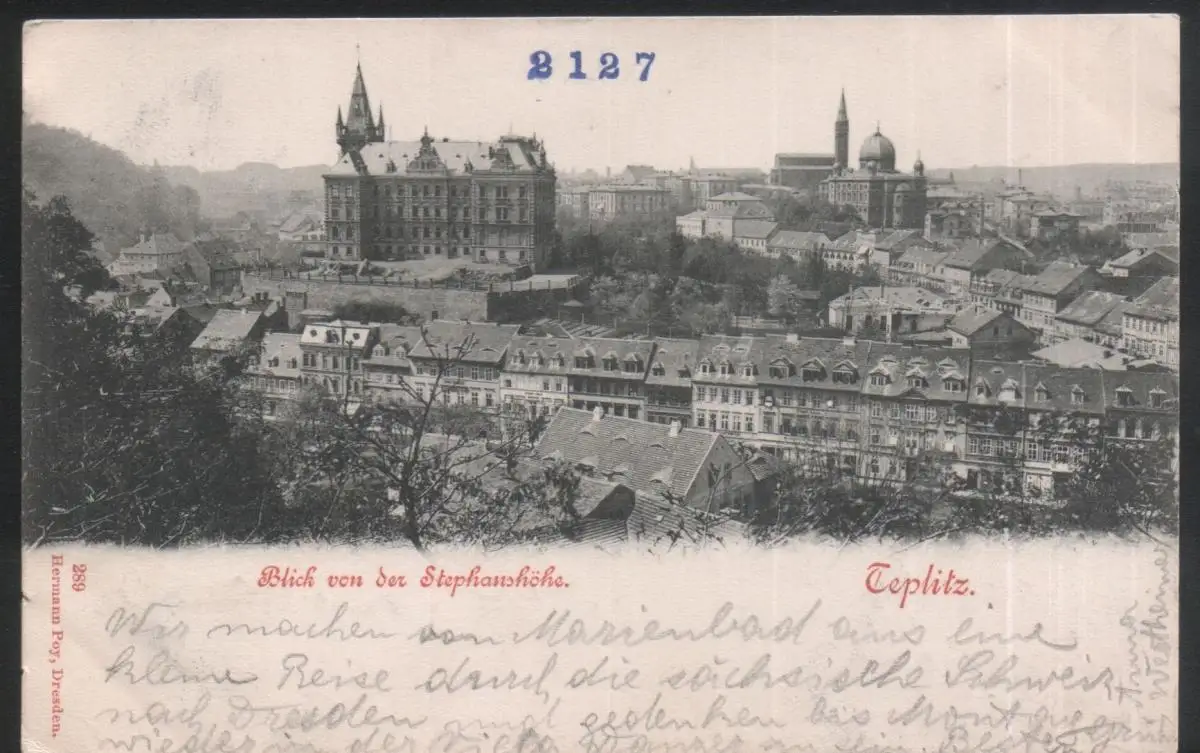 2127
Blick von der Stephanshöhe.
Teplitz.
289
Hermann Poy, Dresden.
Wir machen von Marienbad aus eine
kleine Reise durch die sächsische Schweiz,
nach Dresden und gedenken bis Montag
wieder in der Villa zu sein.
Anna
Westheimer